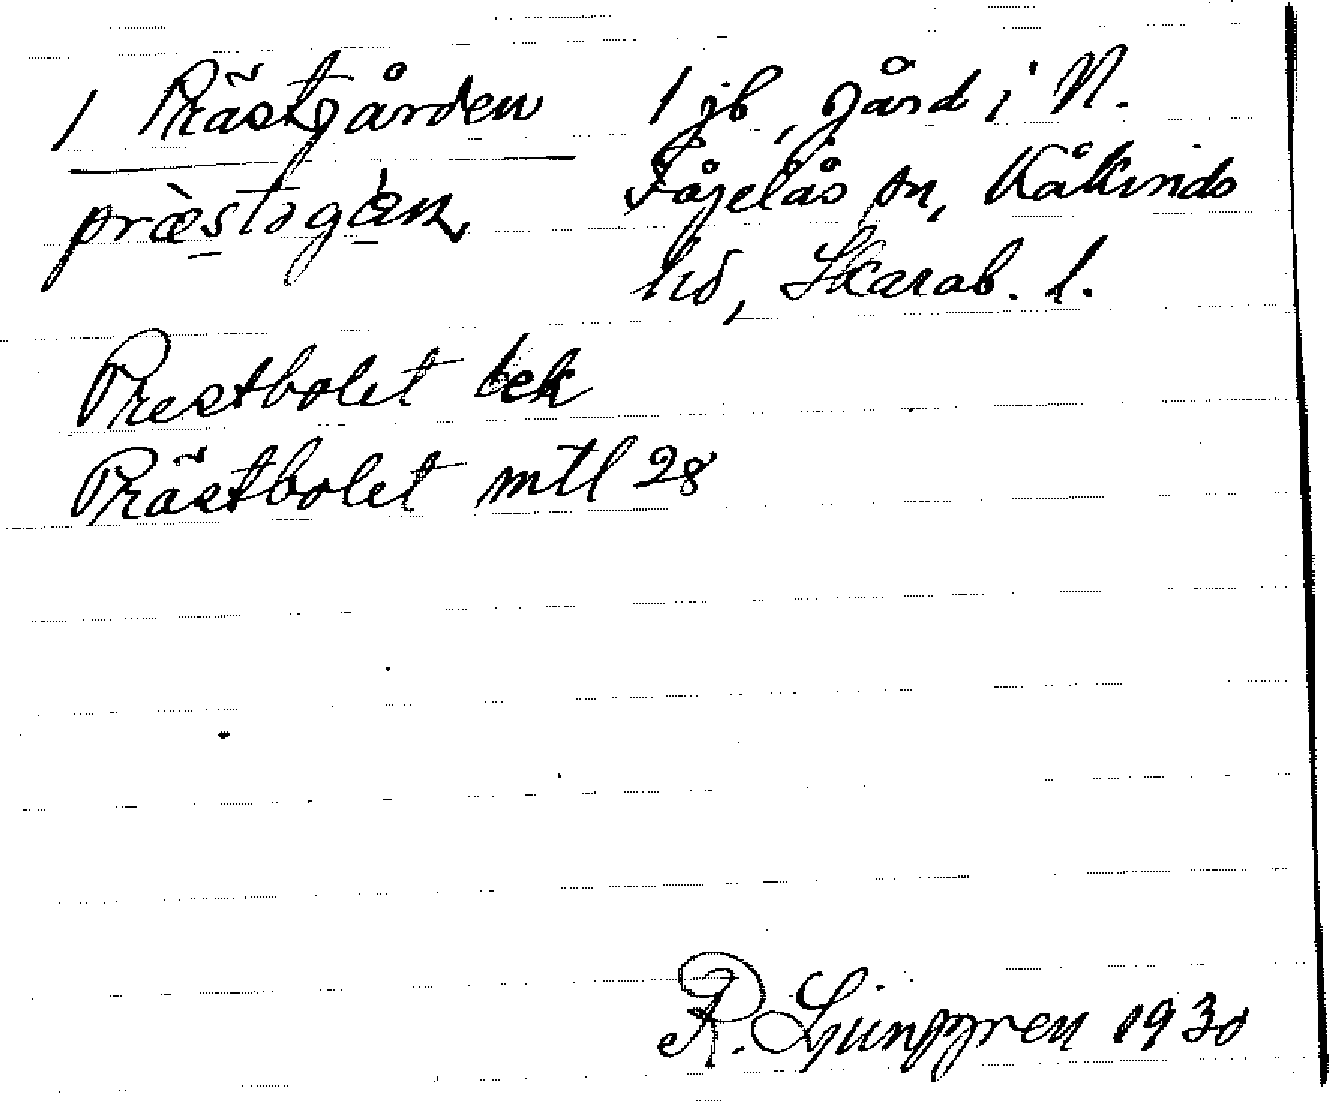 1 Prästgården
præ̀stogáṇ
1 jb, gård i N.
Fågelås sn, Kåkinds
hd, Skarab. l.
Prestbolet bek
Prästbolet mtl 28
R. Ljunggren 1930